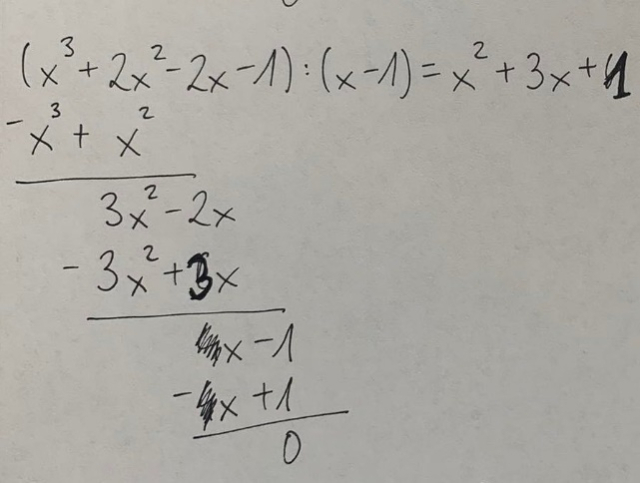 (x³ + 2x² - 2x - 1) : (x - 1) = x² + 3x + 1
- x³ + x²
3x² - 2x
- 3x² + 3x
x - 1
- x + 1
0